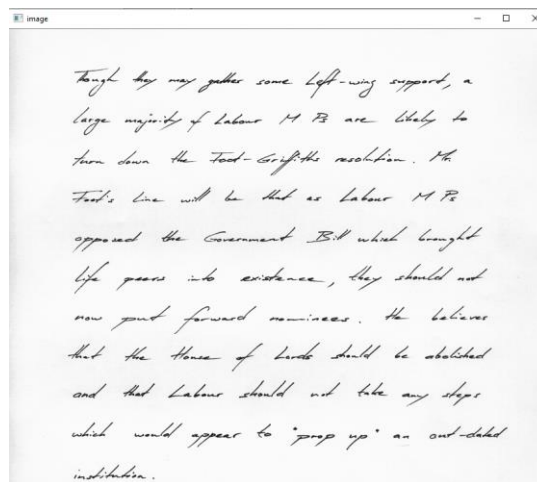 image
Though they may gather some Left-wing support, a
large majority of Labour M Ps are likely to
turn down the Foot-Griffiths resolution. Mr.
Foot's line will be that as Labour M Ps
opposed the Government Bill which brought
life peers into existence, they should not
now put forward nominees. He believes
that the House of Lords should be abolished
and that Labour should not take any steps
which would appear to "prop up" an out-dated
institution.